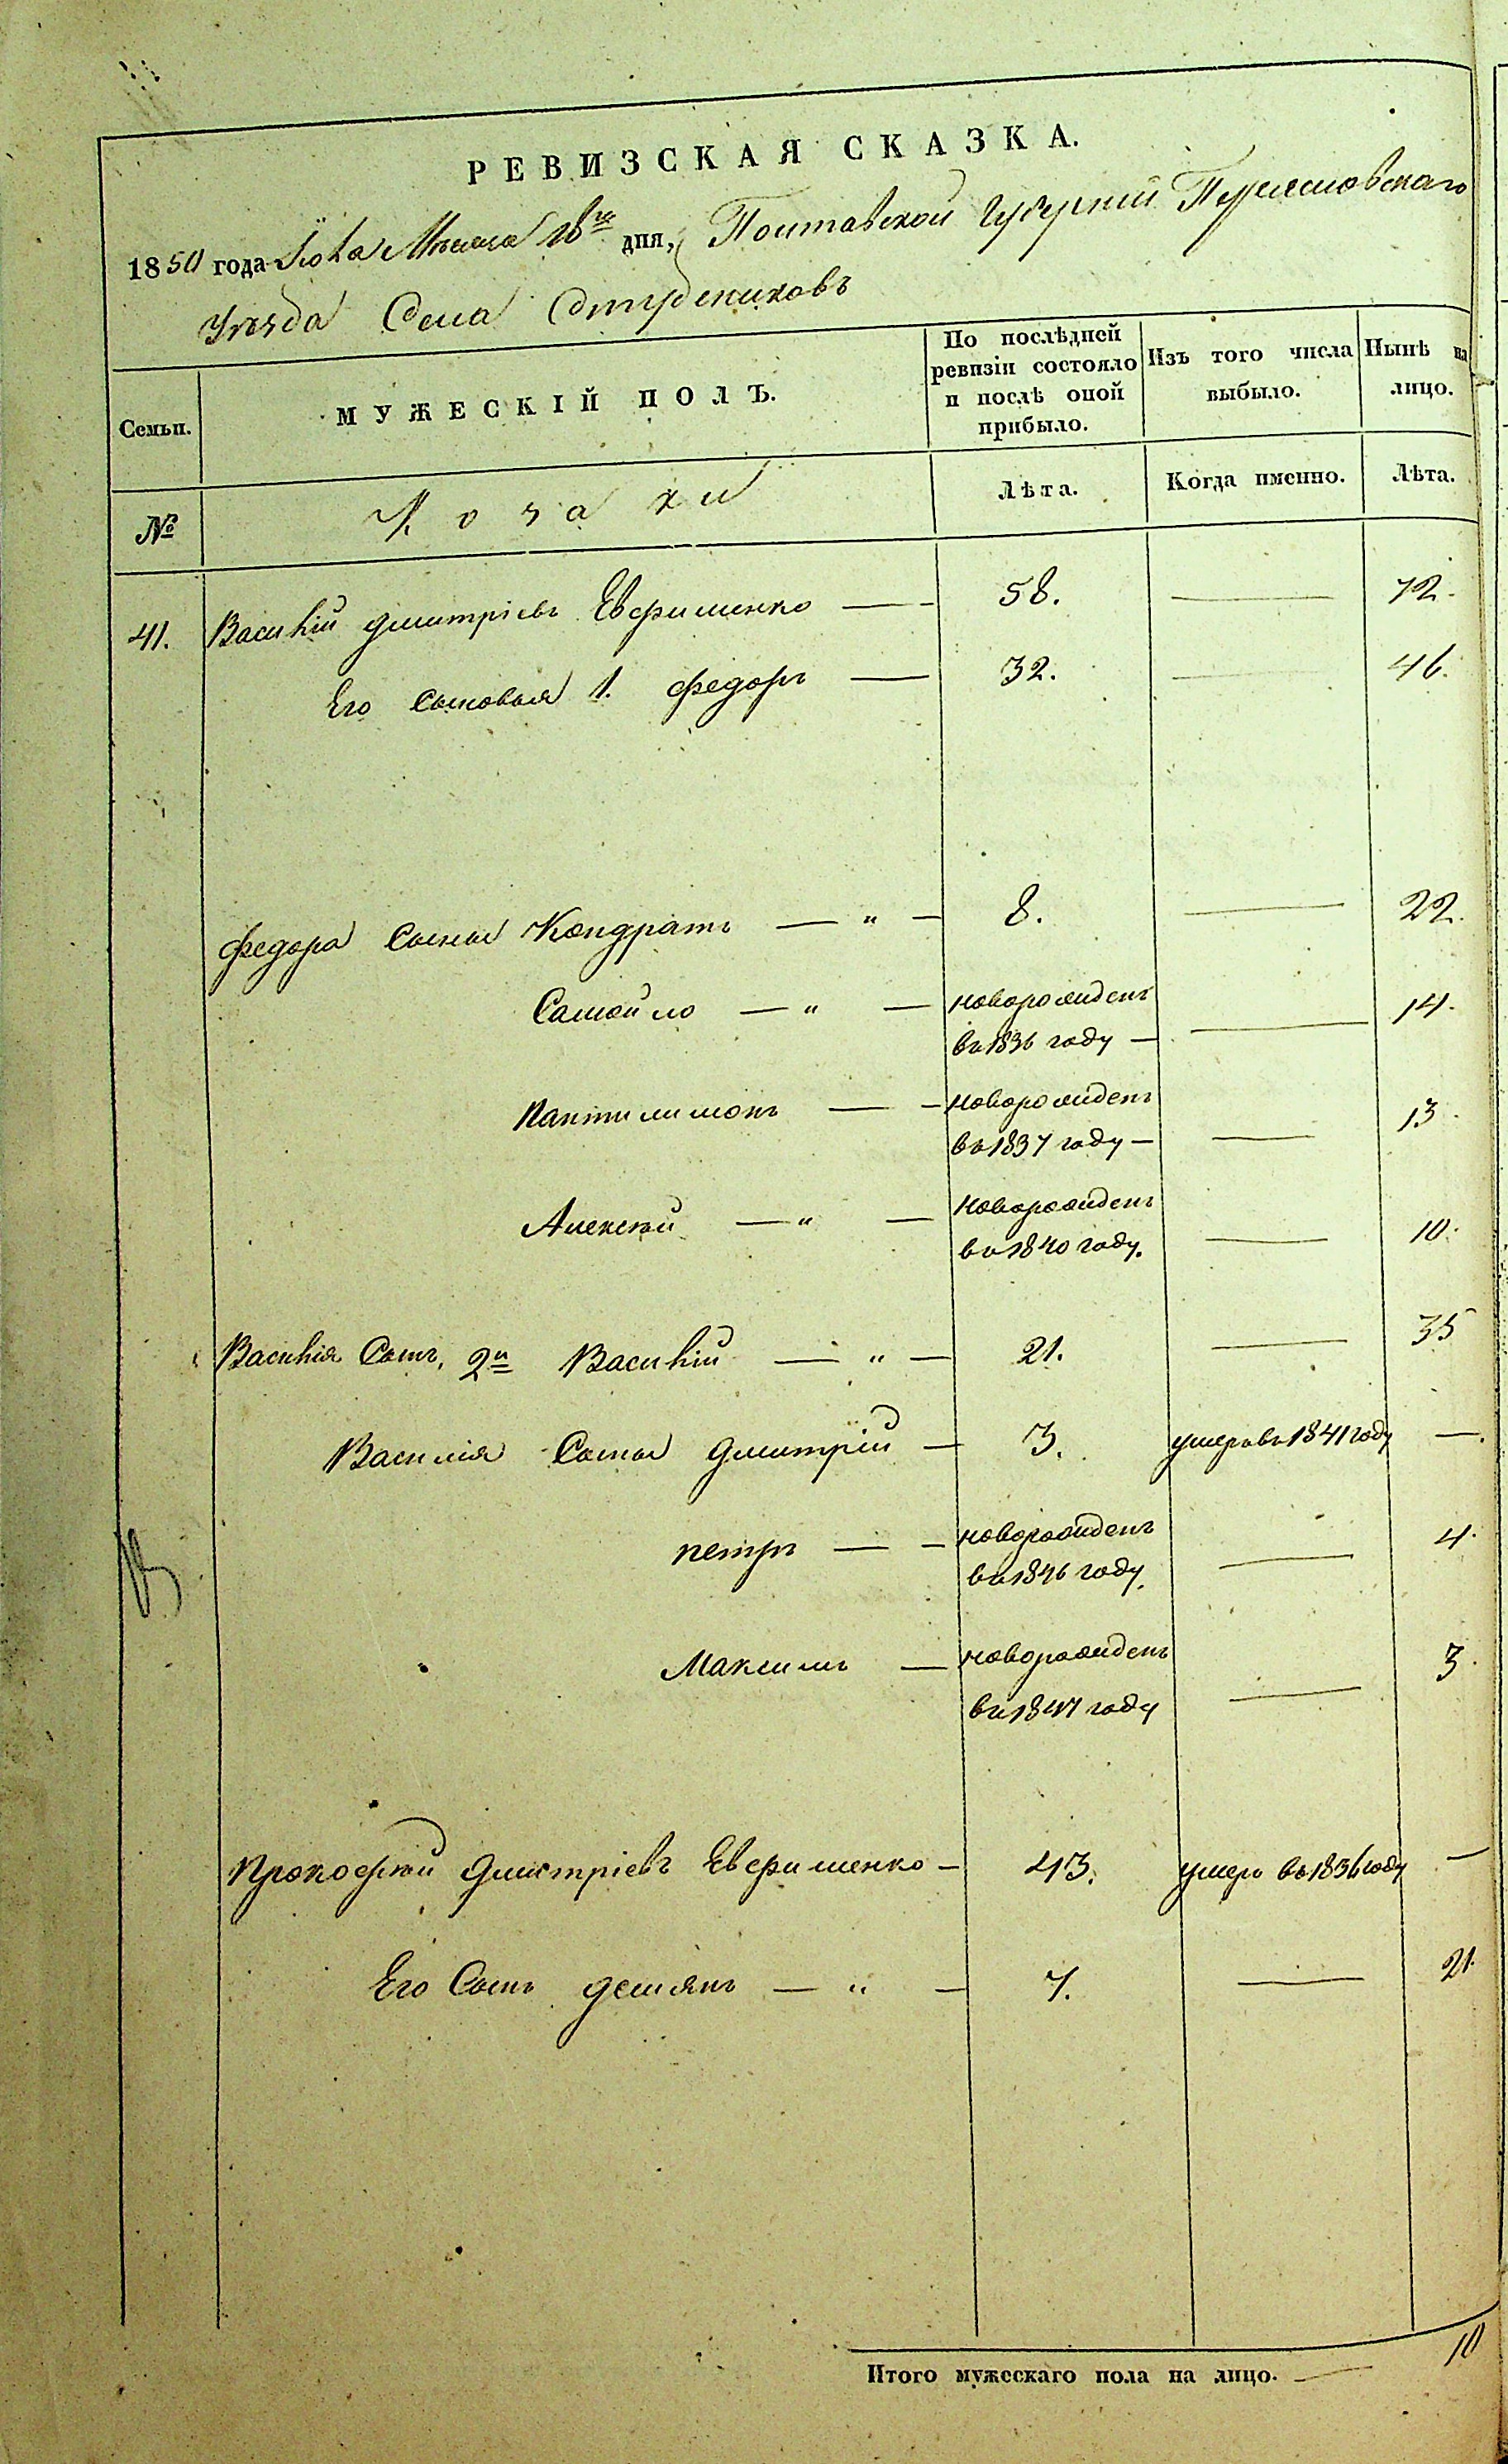 РЕВИЗСКАЯ СКАЗКА.
1850 года Мѣсяца 18го дня, Полтавской Губерніи Переяславскаго
Уѣзда Села Студениковъ
Семьи.
МУЖЕСКІЙ ПОЛЪ.
По послѣдней
ревизіи состояло
и послѣ оной
прибыло.
Изъ того числа
выбыло.
Нынѣ на
лицо.
№
Козаки
Лѣта.
Когда именно.
Лѣта.
41. Василій Дмитріевъ Евфименко — 58. — 72.
Его Сыновья 1. Федоръ — 32. — 46.
Федора Сыны Кондратъ — „ — 8. — 22.
Самойло — „ — новорожденъ — 14.
въ 1836 году —
Пантилимонъ — — новорожденъ — 13.
въ 1837 году —
Алексѣй — „ — новорожденъ — 10.
въ 1840 году.
Василія Сынъ, 2й Василій — „ — 21. — 35
Василія Сыны Дмитрій — 3. умеръ въ 1841 году —.
Петръ — — новорожденъ — 4.
въ 1846 году.
Максимъ — новорожденъ — 3.
въ 1847 году
Прокофій Дмитріевъ Евфименко — 43. умеръ въ 1836 году —
Его Сынъ Демянъ — „ — 7. — 21.
Итого мужескаго пола на лицо. — 10